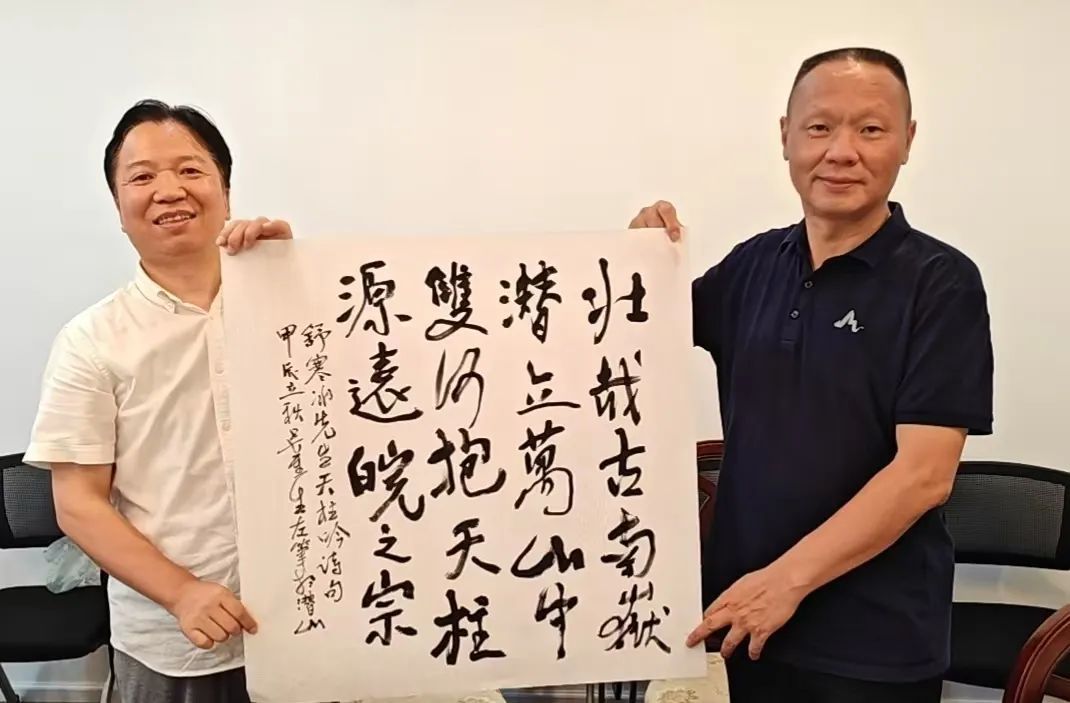 壯哉古南嶽
潛立萬山中
雙河抱天柱
源遠皖之宗
舒寒冰先生天柱吟詩句
甲辰立秋 生左筆於潛山